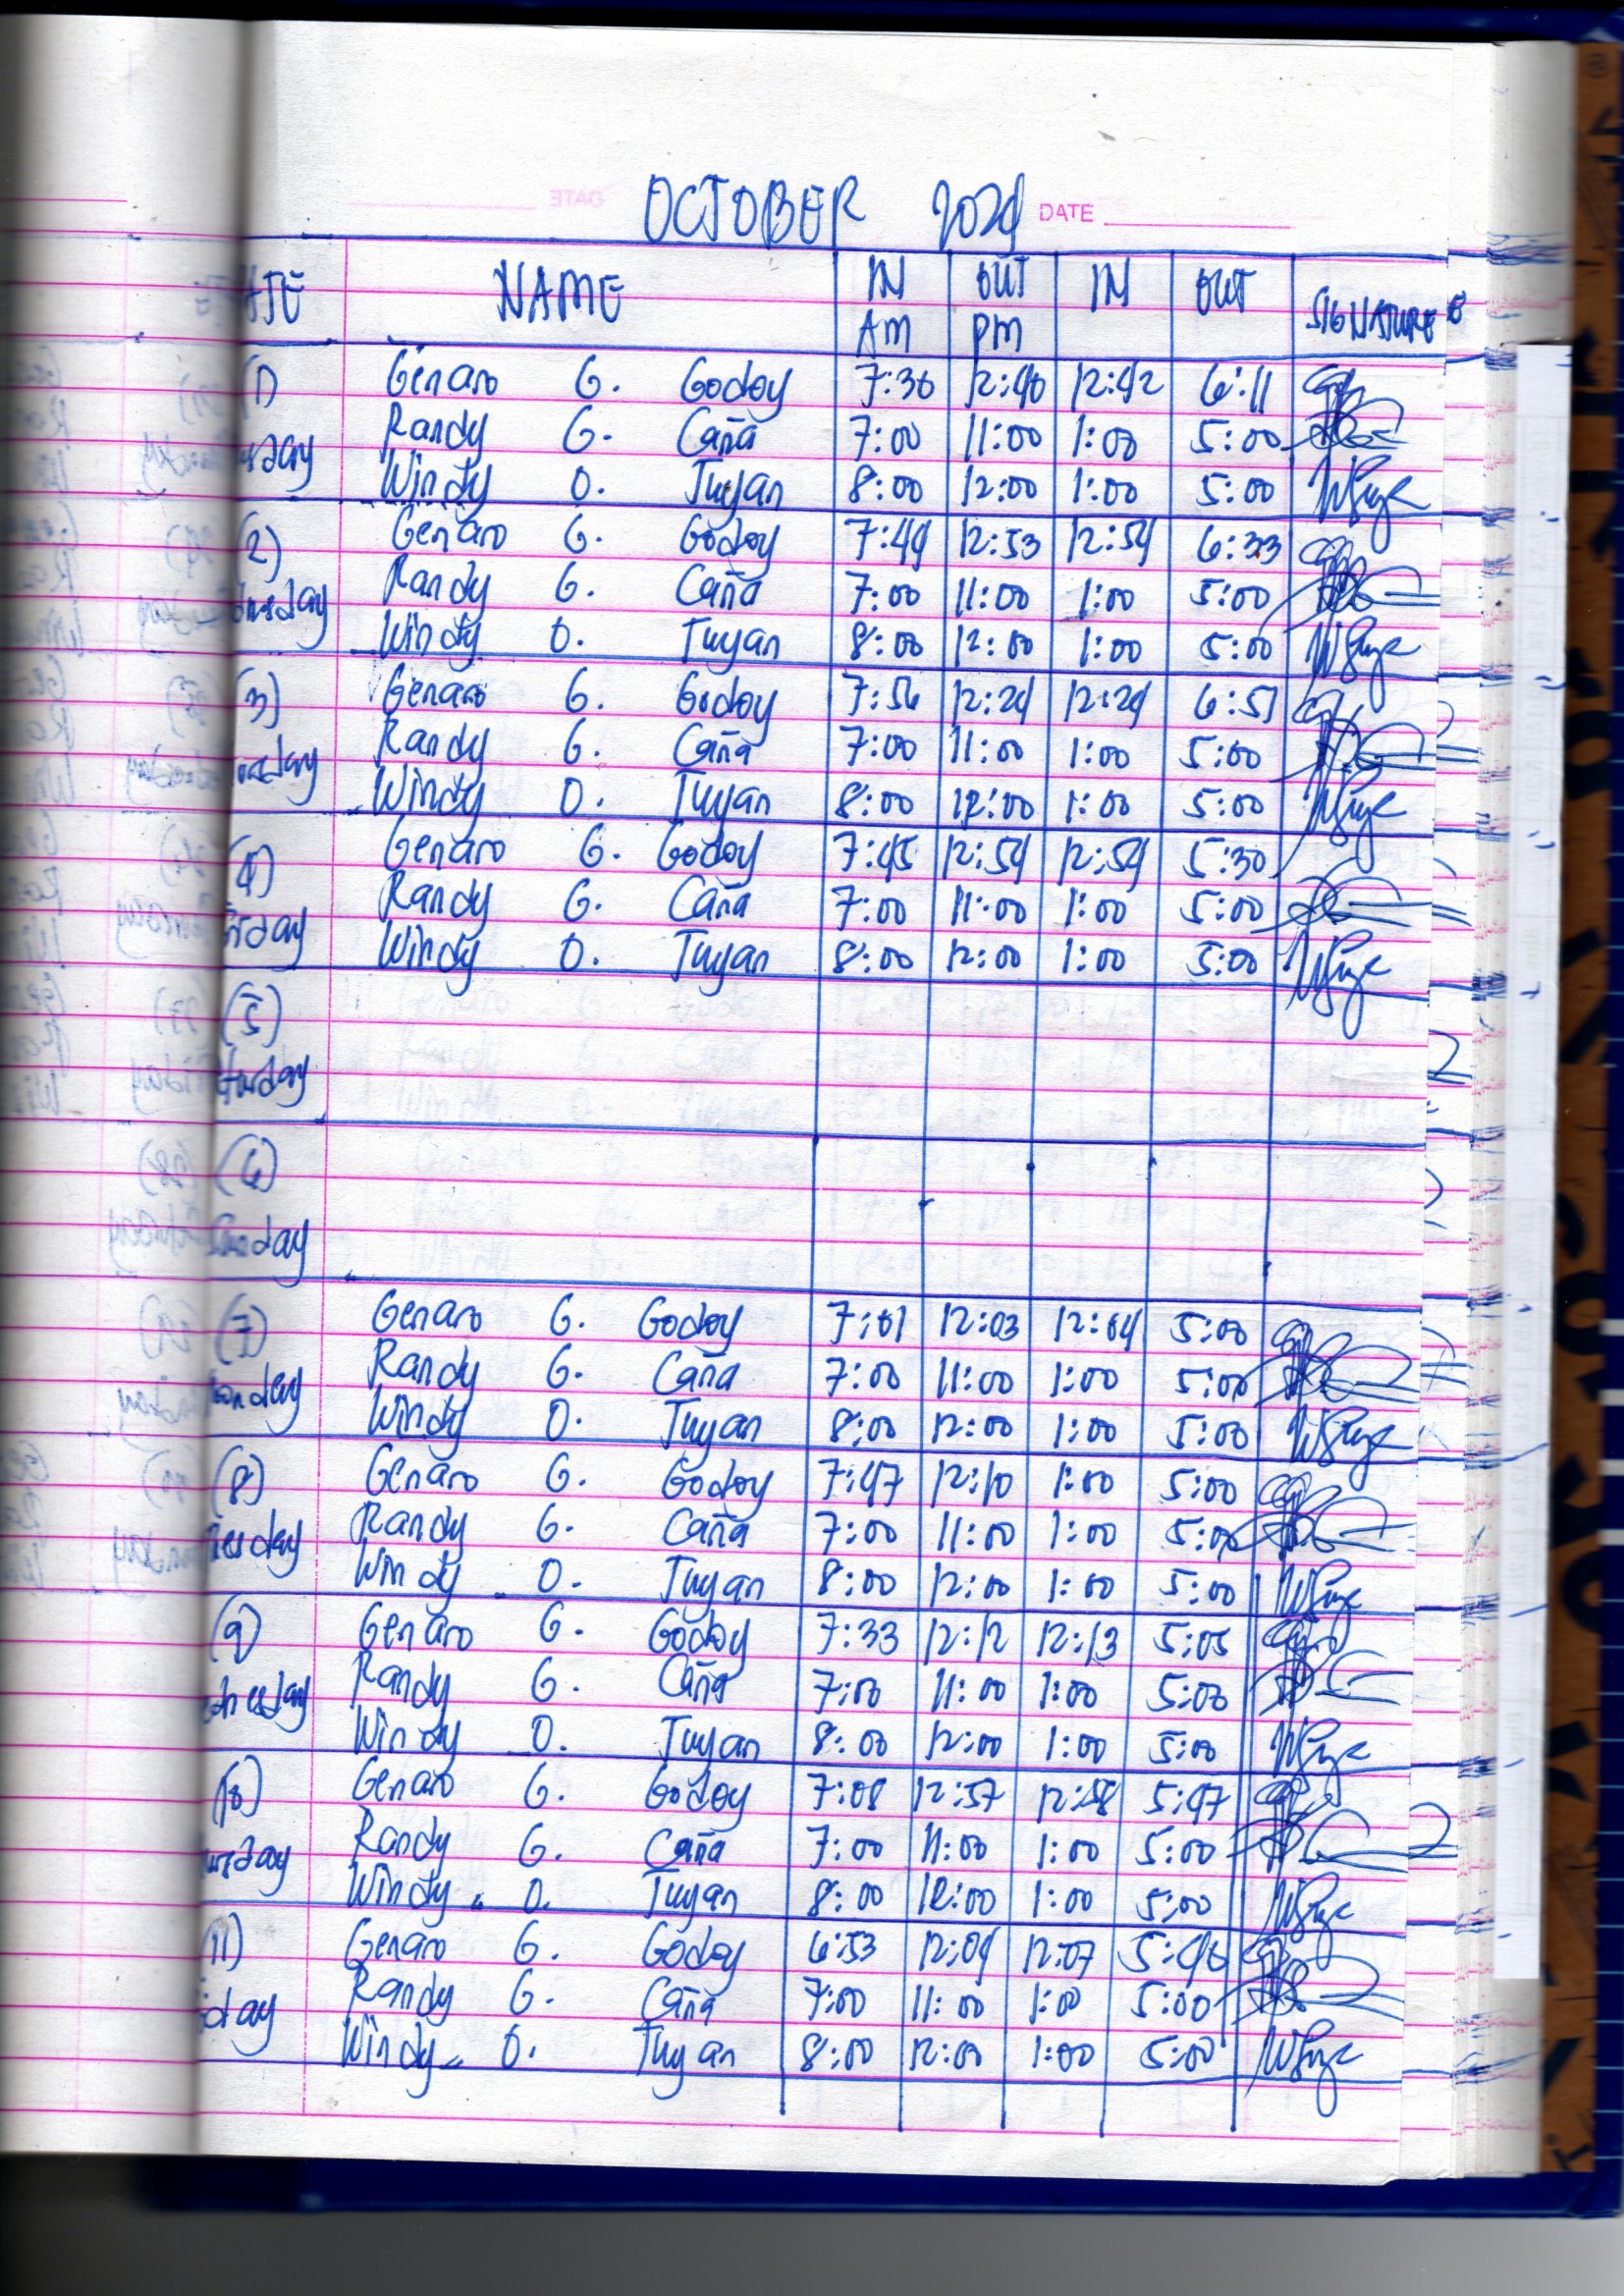 OCTOBER 2024 DATE
NAME IN AM OUT PM IN OUT SIGNATURE
(1) Genaro G. Godoy 7:36 12:40 12:42 6:11
Randy G. Caña 7:00 11:00 1:00 5:00
Windy O. Tuyan 8:00 12:00 1:00 5:00
(2) Genaro G. Godoy 7:49 12:53 12:54 6:33
Randy G. Caña 7:00 11:00 1:00 5:00
Windy O. Tuyan 8:00 12:00 1:00 5:00
(3) Genaro G. Godoy 7:56 12:24 12:24 6:51
Randy G. Caña 7:00 11:00 1:00 5:00
Windy O. Tuyan 8:00 12:00 1:00 5:00
(4) Genaro G. Godoy 7:45 12:54 12:54 5:30
Randy G. Caña 7:00 11:00 1:00 5:00
Friday Windy O. Tuyan 8:00 12:00 1:00 5:00
(5)
turday
(6)
Sunday
(7) Genaro G. Godoy 7:01 12:03 12:04 5:00
Randy G. Caña 7:00 11:00 1:00 5:00
onday Windy O. Tuyan 8:00 12:00 1:00 5:00
(8) Genaro G. Godoy 7:47 12:10 1:00 5:00
Randy G. Caña 7:00 11:00 1:00 5:00
uesday Windy O. Tuyan 8:00 12:00 1:00 5:00
(9) Genaro G. Godoy 7:33 12:12 12:13 5:05
Randy G. Caña 7:00 11:00 1:00 5:00
dnesday Windy O. Tuyan 8:00 12:00 1:00 5:00
(10) Genaro G. Godoy 7:08 12:57 12:58 5:47
Randy G. Caña 7:00 11:00 1:00 5:00
ursday Windy O. Tuyan 8:00 12:00 1:00 5:00
(11) Genaro G. Godoy 6:53 12:04 12:07 5:46
iday Randy G. Caña 7:00 11:00 1:00 5:00
Windy O. Tuyan 8:00 12:00 1:00 5:00